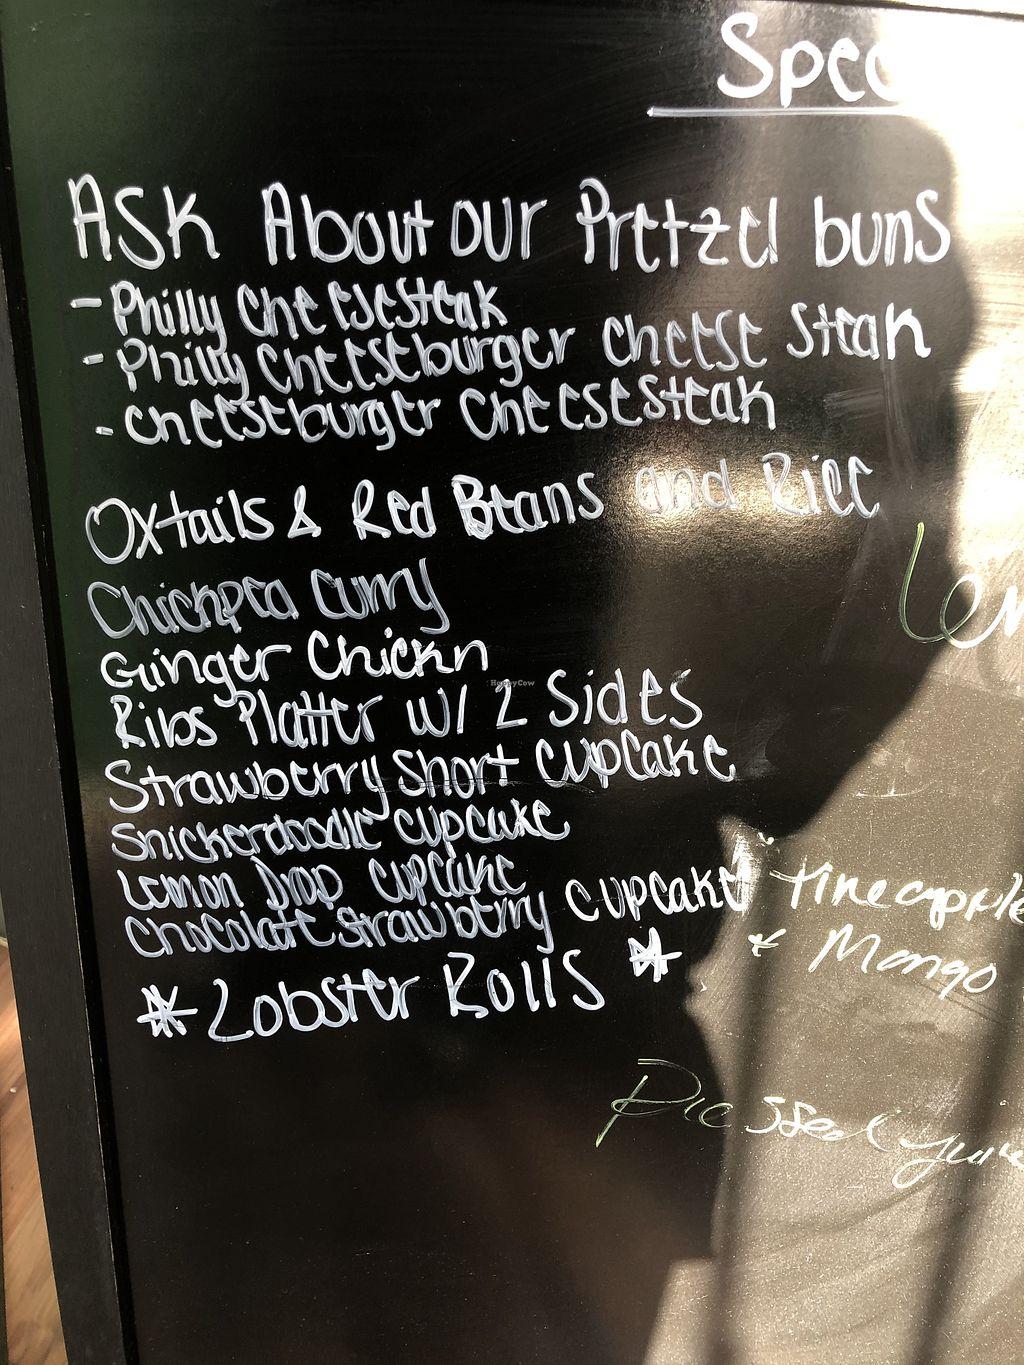 Spec
ASK About our Pretzel buns
- Philly Cheesesteak
- Philly Cheeseburger Cheese Steak
- Cheeseburger Cheesesteak
Oxtails & Red Beans and Rice
Chickpea curry
Ginger Chickn
Ribs Platter w/ 2 Sides
Strawberry Short Cupcake
Snickerdoodle cupcake
Lemon Drop Cupcake
Chocolate Strawberry cupcake
* Lobster Rolls *
Lem
Pineapple
* Mango
Pressed Juice
HappyCow